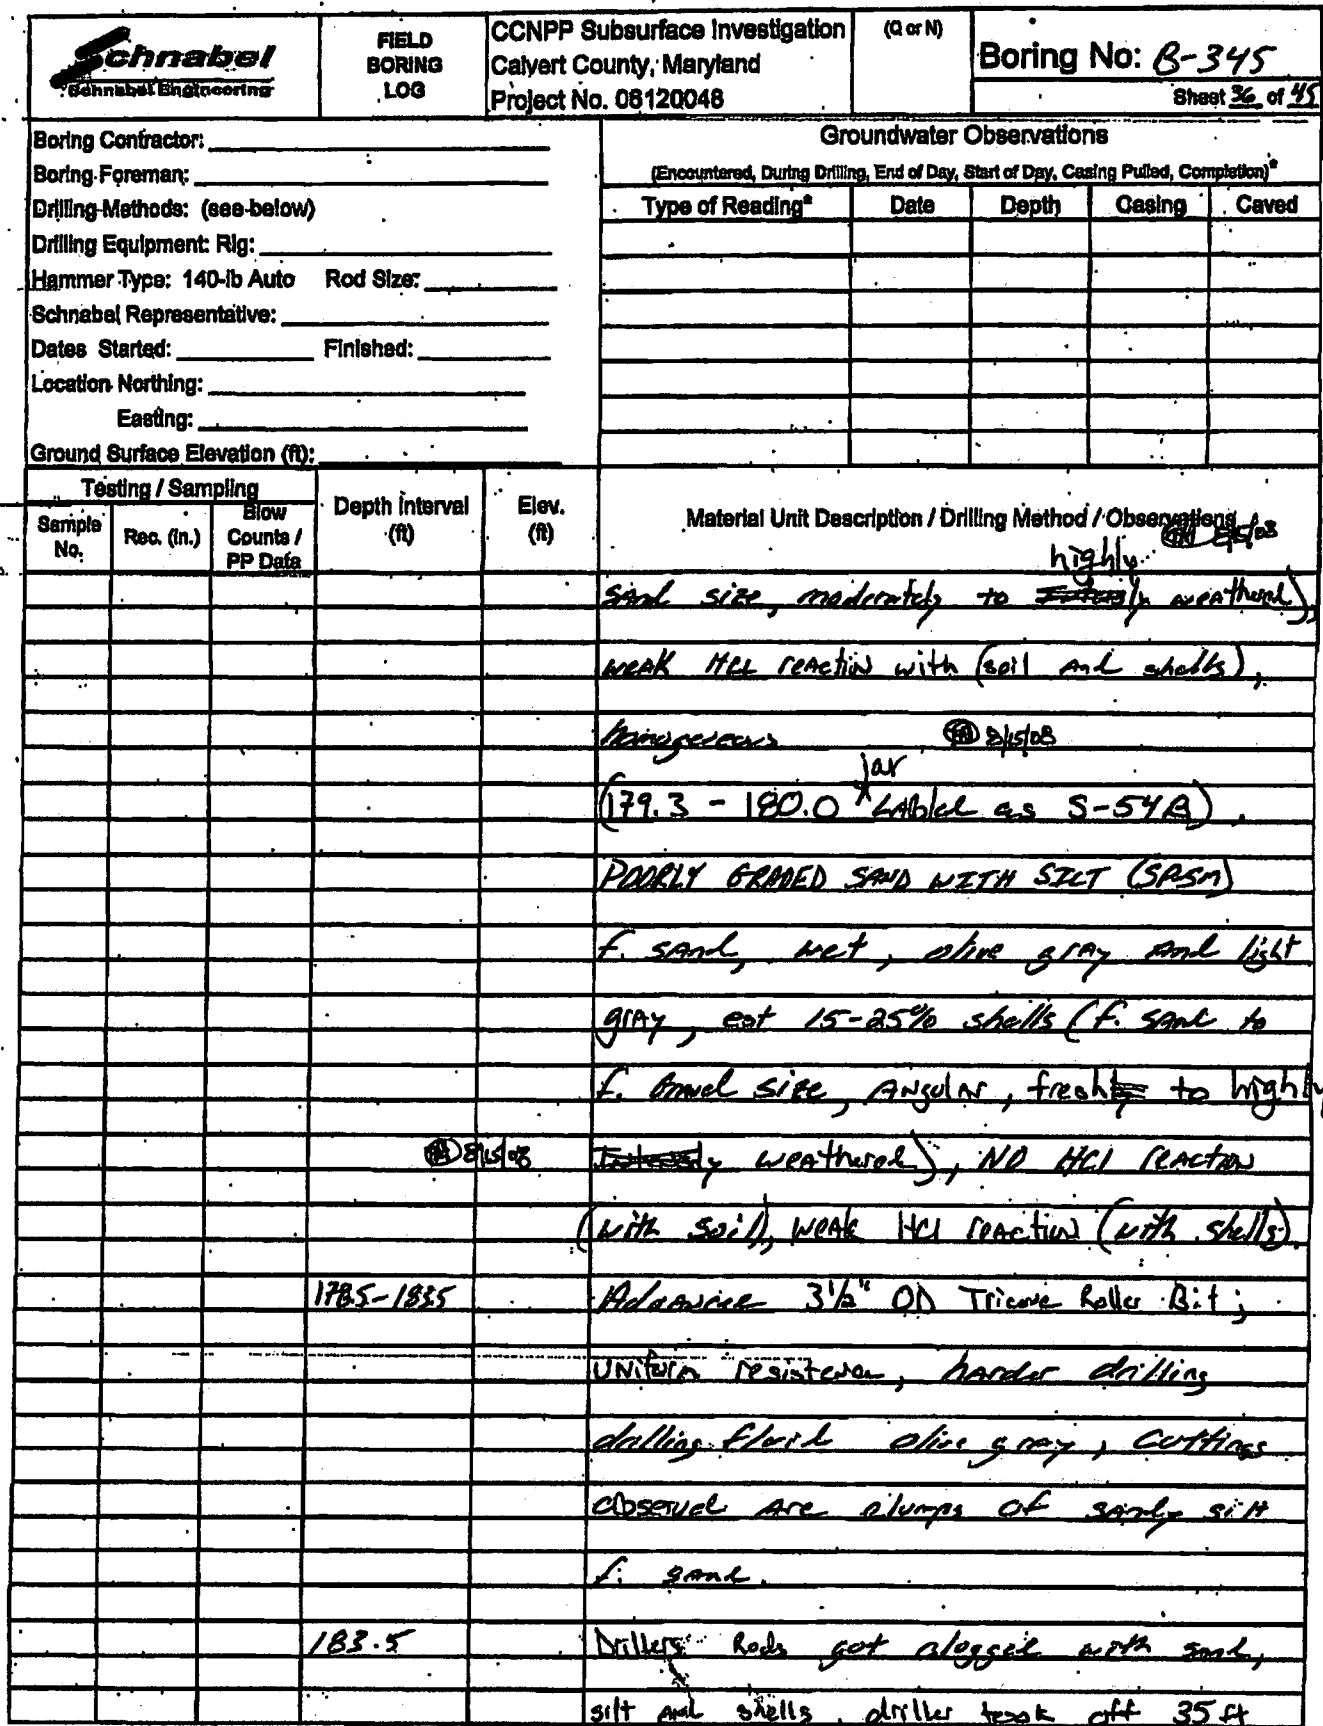 Schnabel
Schnabel Engineering
FIELD
BORING
LOG
CCNPP Subsurface Investigation
Calvert County, Maryland
Project No. 06120048
(Q or N)
Boring No: B-345
Sheet 36 of 45
Boring Contractor:
Boring Foreman:
Drilling Methods: (see below)
Drilling Equipment: Rig:
Hammer Type: 140-lb Auto Rod Size:
Schnabel Representative:
Dates Started: Finished:
Location Northing:
Easting:
Ground Surface Elevation (ft):
Groundwater Observations
(Encountered, During Drilling, End of Day, Start of Day, Casing Pulled, Completion)*
Type of Reading* Date Depth Casing Caved
Testing / Sampling
Sample
No.
Rec. (in.)
Blow
Counts /
PP Data
Depth Interval
(ft)
Elev.
(ft)
Material Unit Description / Drilling Method / Observations
8/15/08
highly
sand size, moderately to weathered),
weak HCL reaction with (soil and shells),
homogeneous 8/15/08
jar
(179.3 - 180.0 ^ Label as S-54B).
POORLY GRADED SAND WITH SILT (SPSM)
f. sand, wet, olive gray and light
gray, est 15-25% shells (f. sand to
f. gravel size, Angular, fresh to highly
8/15/08 weathered), NO HCl reaction
(with soil), weak HCl reaction (with shells).
178.5-183.5 Advance 3 1/2" OD Tricone Roller Bit;
uniform resistence, harder drilling
drilling fluid olive gray, cuttings
observed are clumps of sandy silt
f. sand.
183.5 Drillers Rods got clogged with sand,
silt and shells. driller took off 35 ft